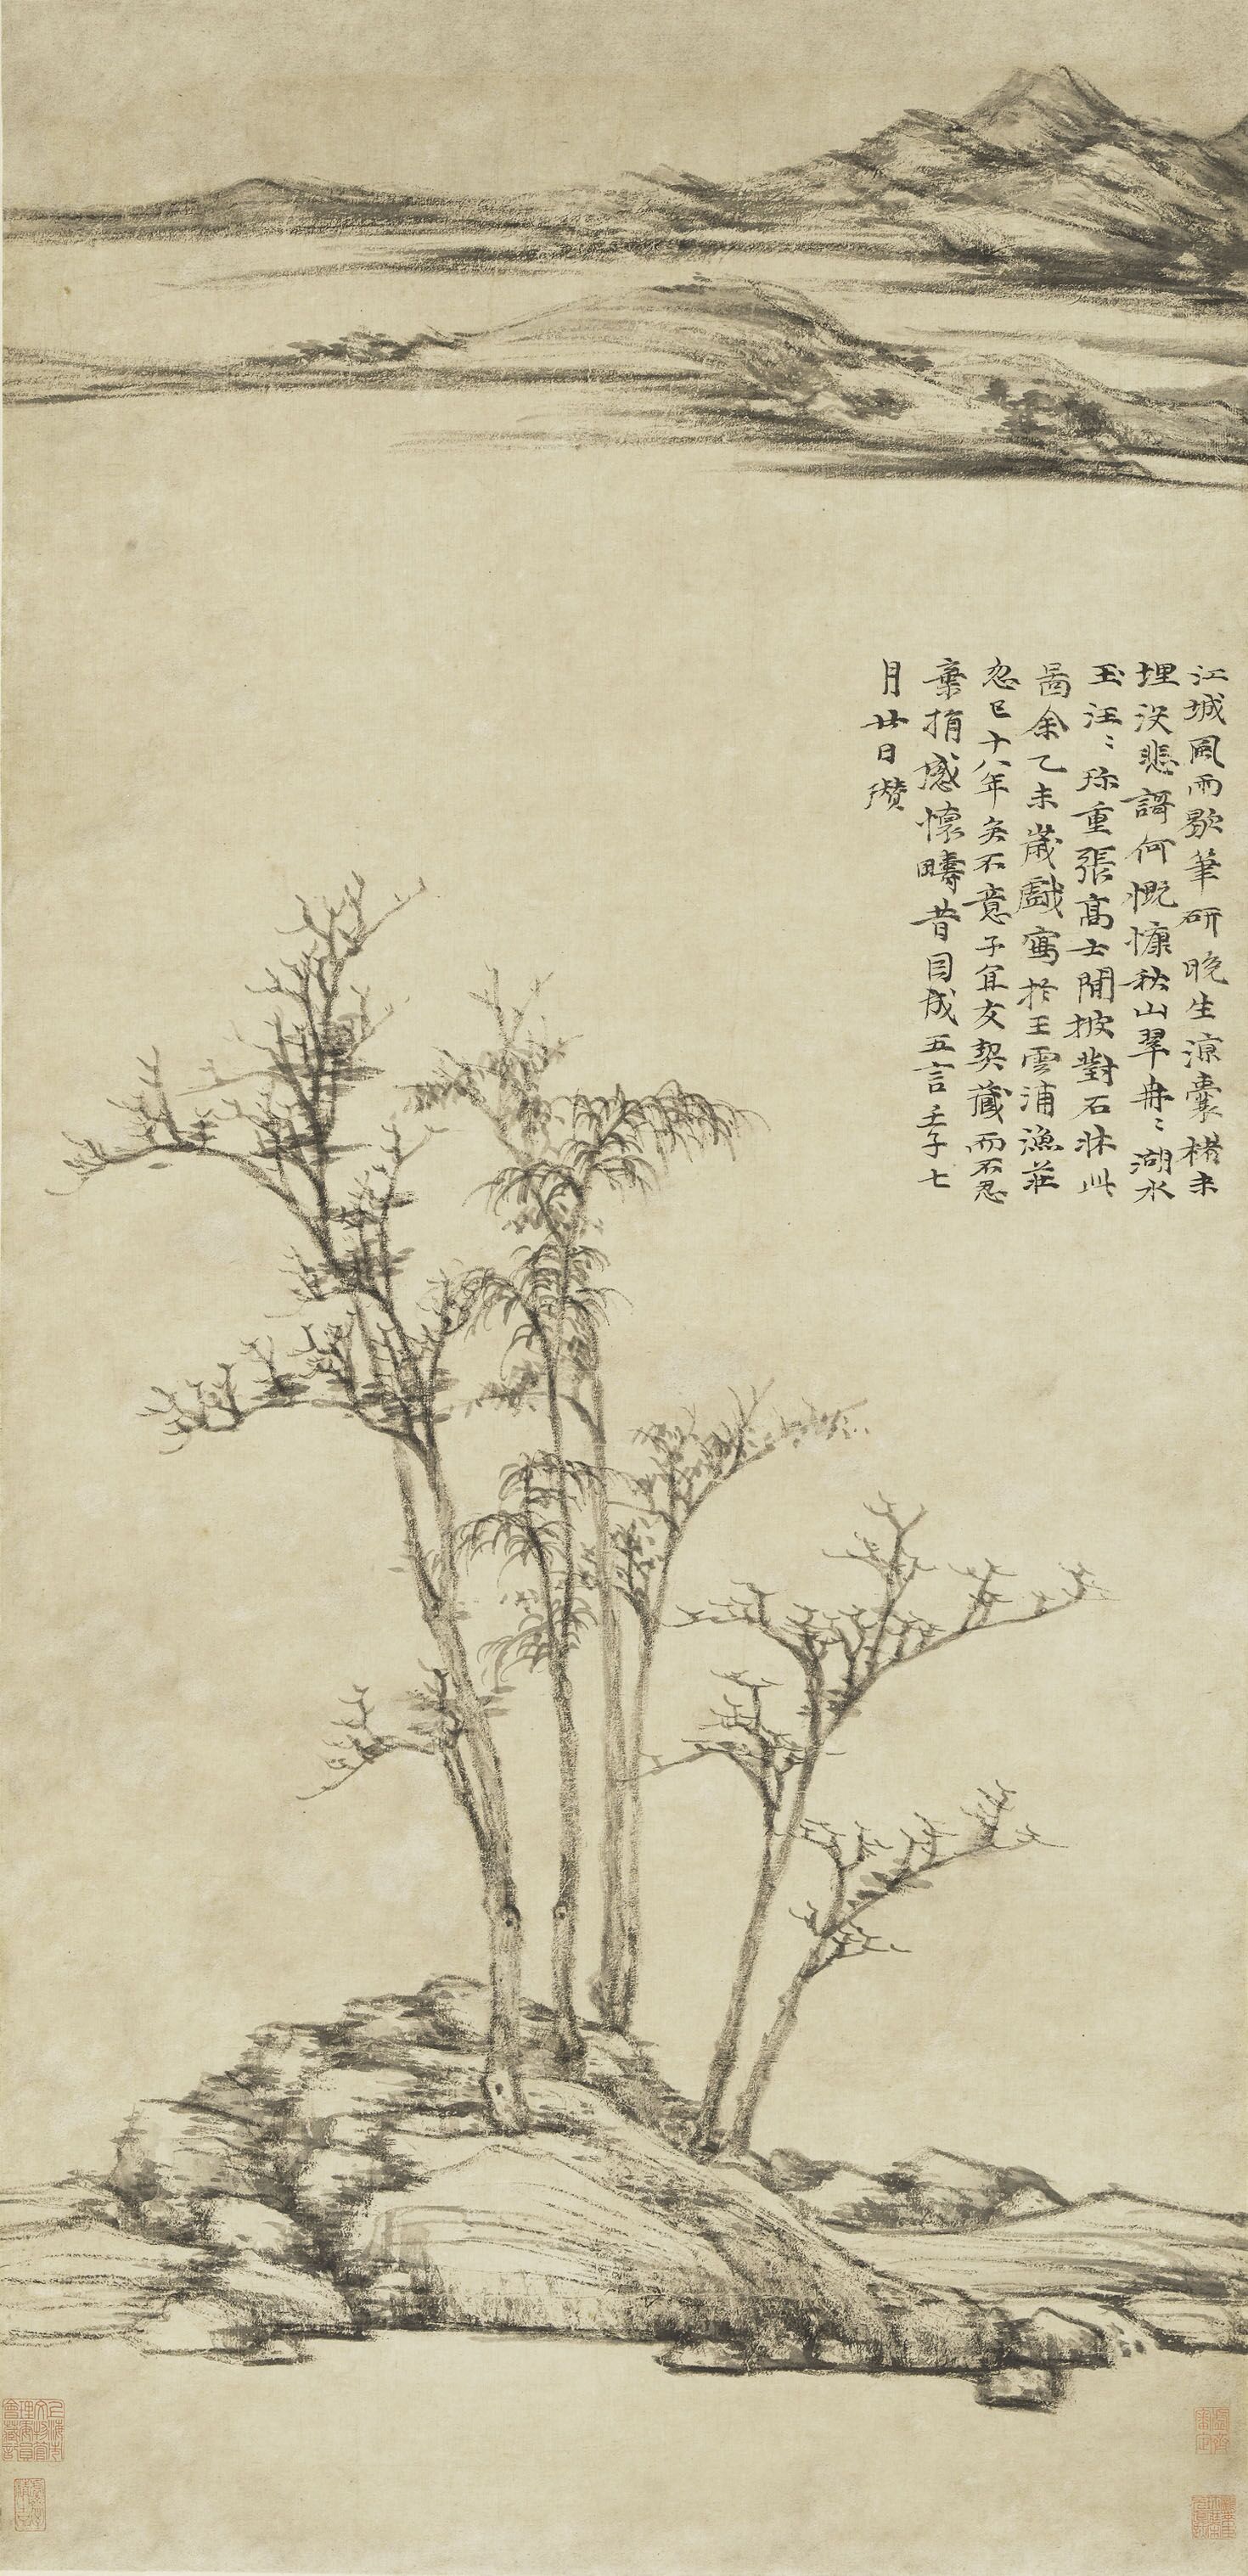 江城風雨歇筆研晚生涼囊楮未
埋没悲謌何慨慷秋山翠冉〻湖水
玉汪〻珎重張高士閒披對石牀此
啚余乙未歲戲寫於王雲浦漁莊
忽已十八年矣不意子宜友契藏而不忍
棄捐感懷疇昔因成五言壬子七
月廿日瓚